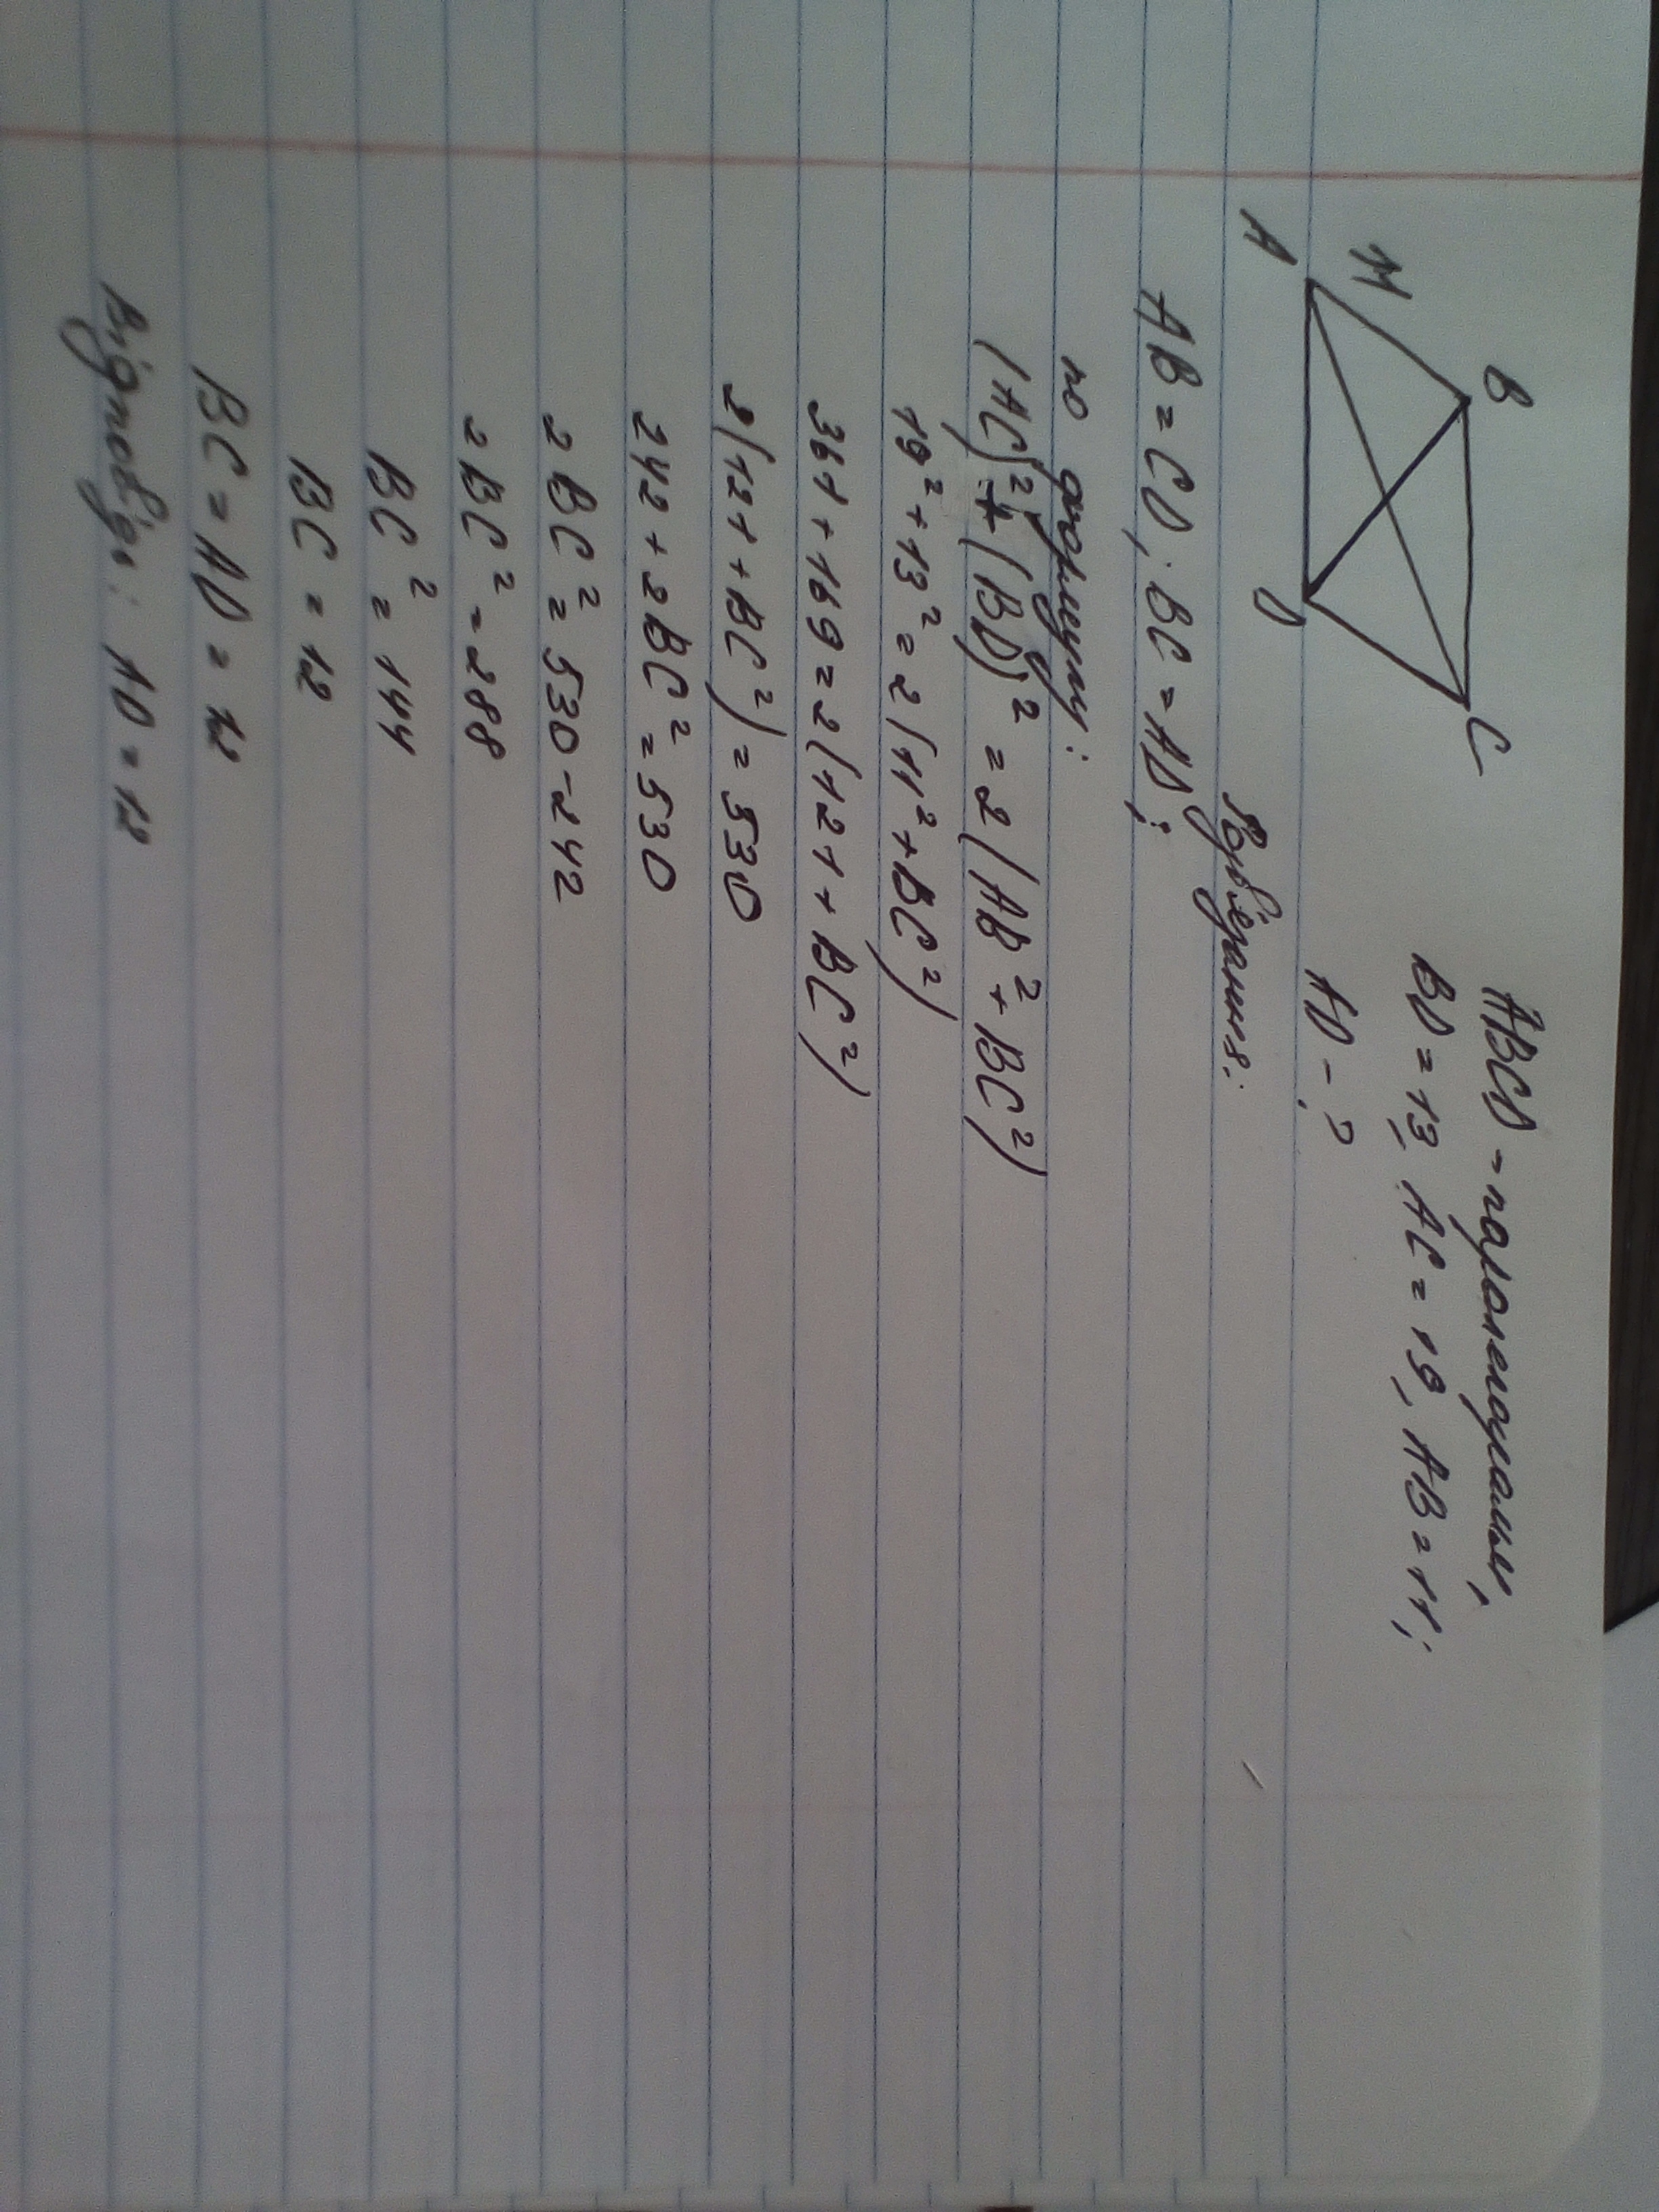 ABCD - паралелограмм,
BD = 13, AC = 19, AB = 11;
AD - ?
B
M
A
C
D
Розв'язання:
AB = CD, BC = AD;
по формулу:
(AC)² + (BD)² = 2(AB² + BC²)
19² + 13² = 2(11² + BC²)
361 + 169 = 2(121 + BC²)
2(121 + BC²) = 530
242 + 2BC² = 530
2BC² = 530 - 242
2BC² = 288
BC² = 144
BC = 12
BC = AD = 12
Відповідь: AD = 12